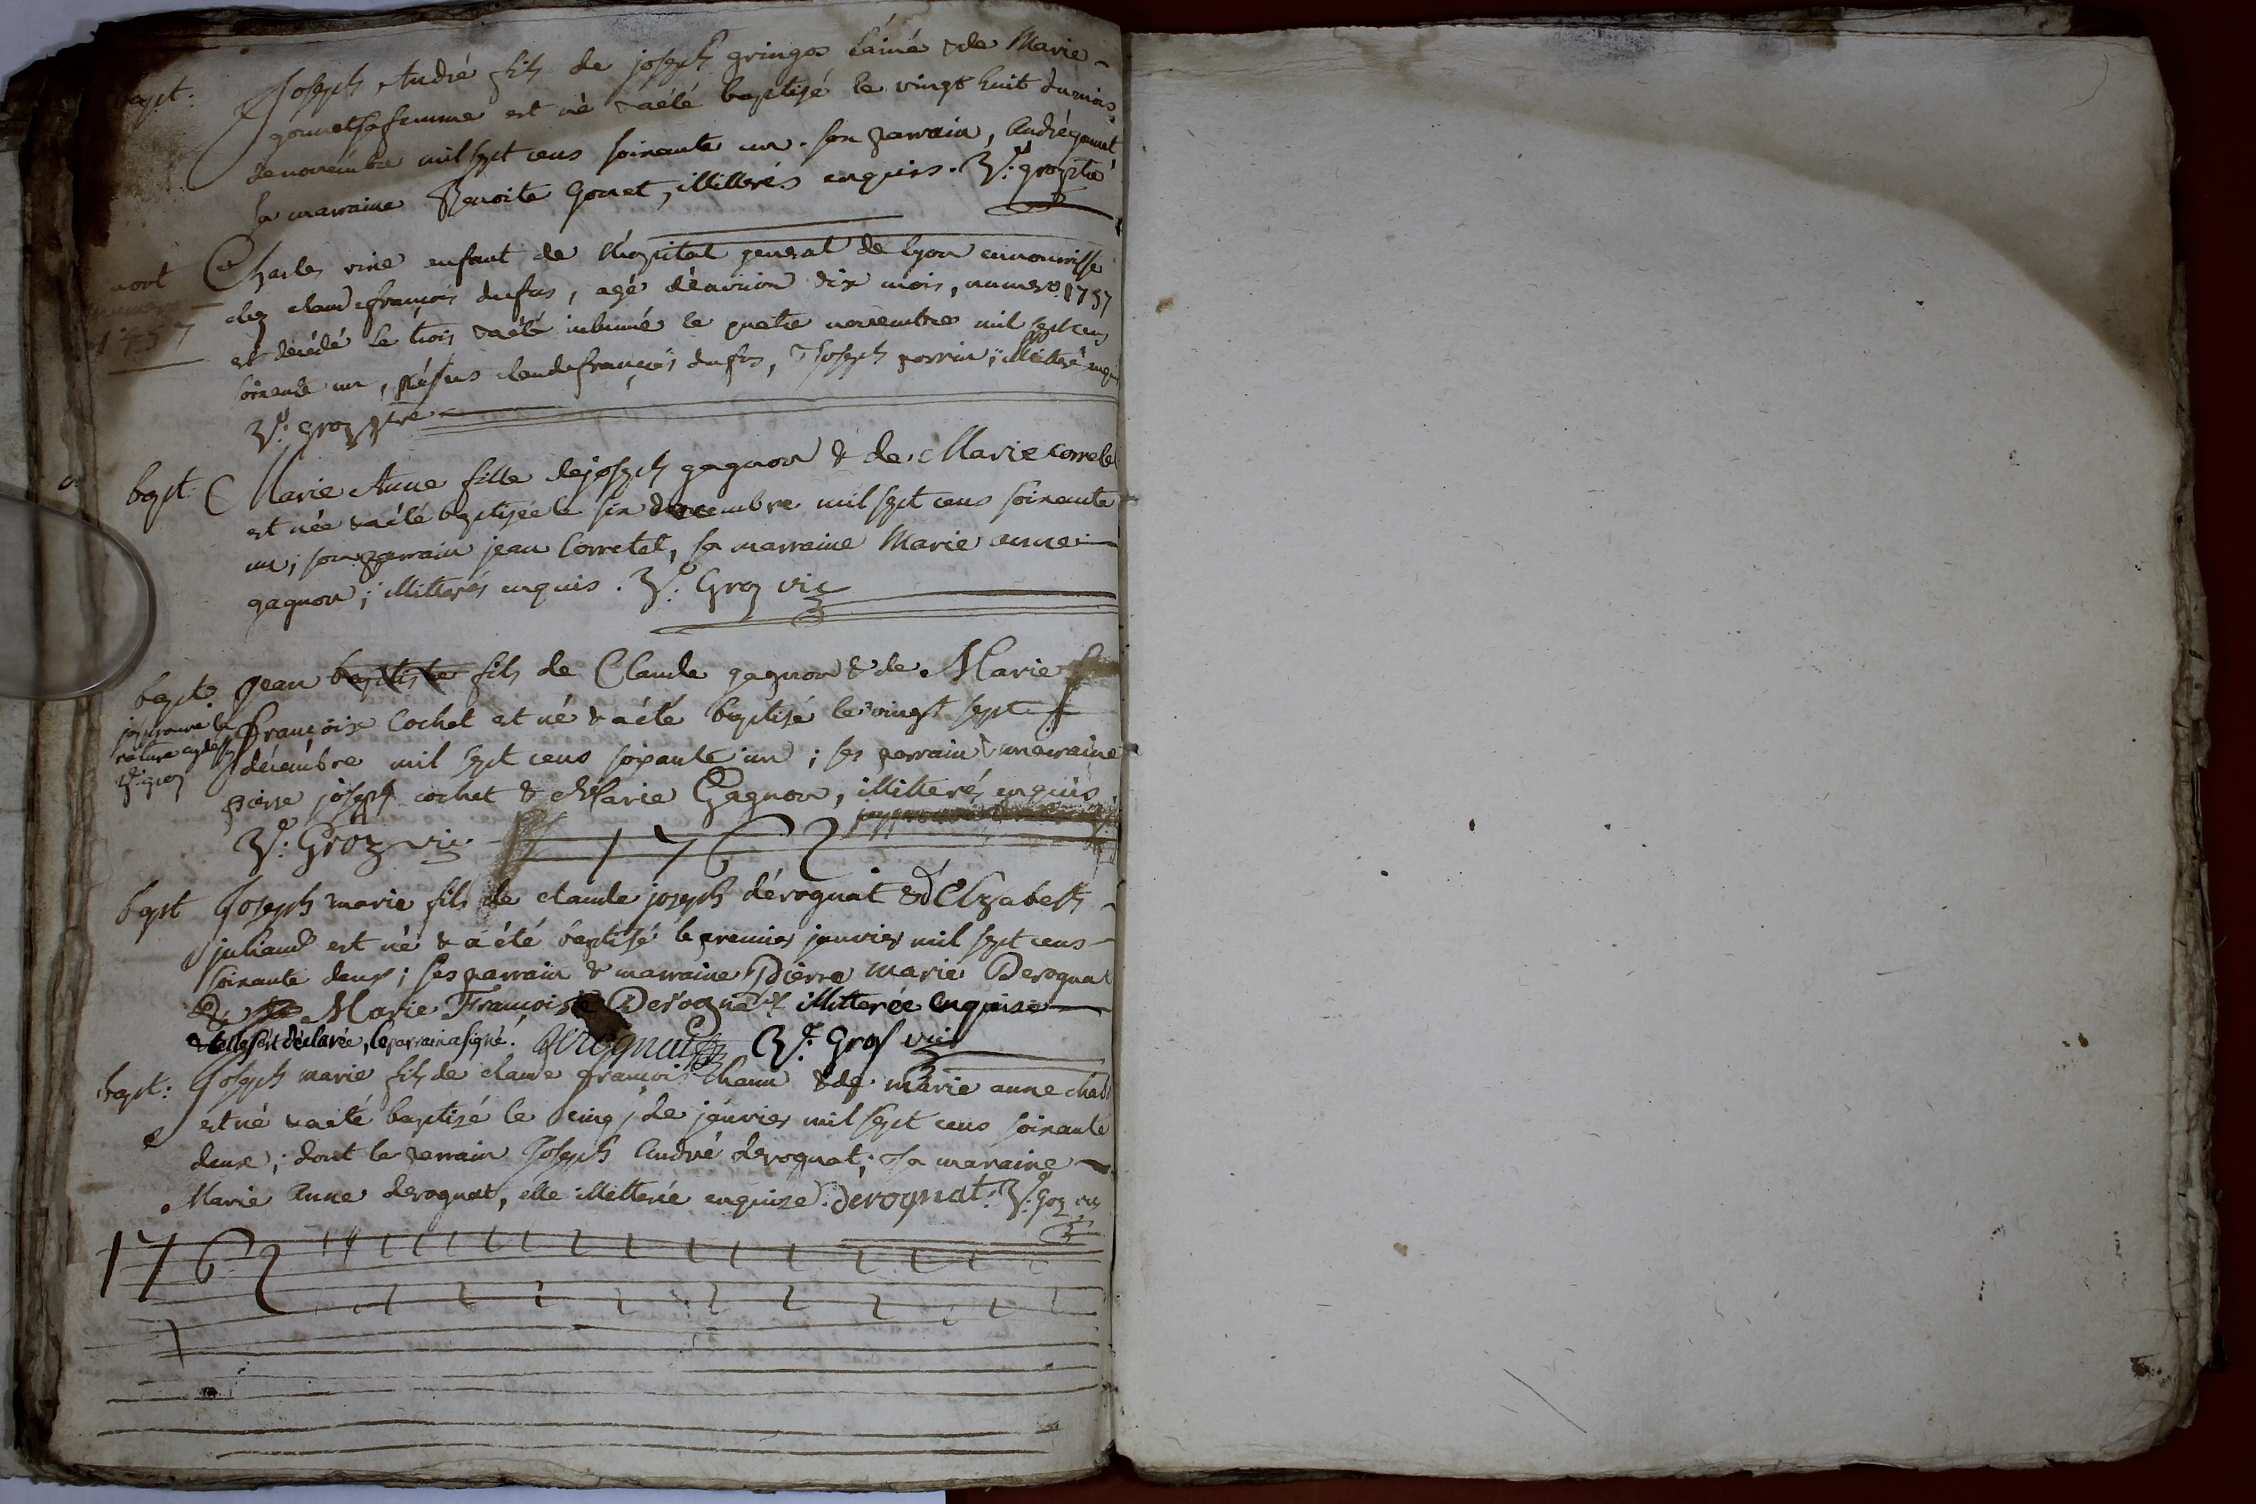 bapt: Joseph André fils de joseph gringoz l'ainé & de Marie
gonnet sa femme est né & a été baptisé le vingt huit du mois
de novembre mil sept cens soixante un. son parrain, André gonnet
la marraine Benoite Gonet, illiterés enquis.
mort Charles vine enfant de l'hopital general de lyon en nourrisse
numero chez claude françois dufus, agé d'environ dix mois, numero 1757
1757 est décédé le trois & a été inhumé le quatre novembre mil sept cens
soixante un, présens claude françois dufus, Joseph perrin; illiterés enquis
Groz ptre
bapt: Marie Anne fille de joseph gagnon & de Marie corretel
est née & a été baptisée le six decembre mil sept cens soixante
un; son parrain jean Corretel, sa marraine Marie anne
gagnon; illiterés enquis. Groz vic
bapt: Jean baptiste fils de Claude gagnon & de Marie
j'approuve la françoise Cochet est né & a été baptisé le vingt sept
rature cy dessus décembre mil sept cens soixante un; ses parrain & marraine
groz pierre joseph cochet & Marie Gagnon, illiterés enquis.
Groz vic. 1762
bapt Joseph marie fils de claude joseph dérognat & d'Elizabeth
juliand est né & a été baptisé le premier janvier mil sept cens
soixante deux; ses parrain & marraine Pierre marie Derognat
& Marie Françoise Derognat illiterée enquise
telle s'est déclarée, le parrain a signé. derognat Gros vic
bapt: Joseph marie fils de claude françois & de marie anne
est né & a été baptisé le cinq de janvier mil sept cens soixante
deux; dont le parrain Joseph André derognat; la maraine
Marie Anne derognat, elle illiterée enquize. derognat. Groz vic
1762